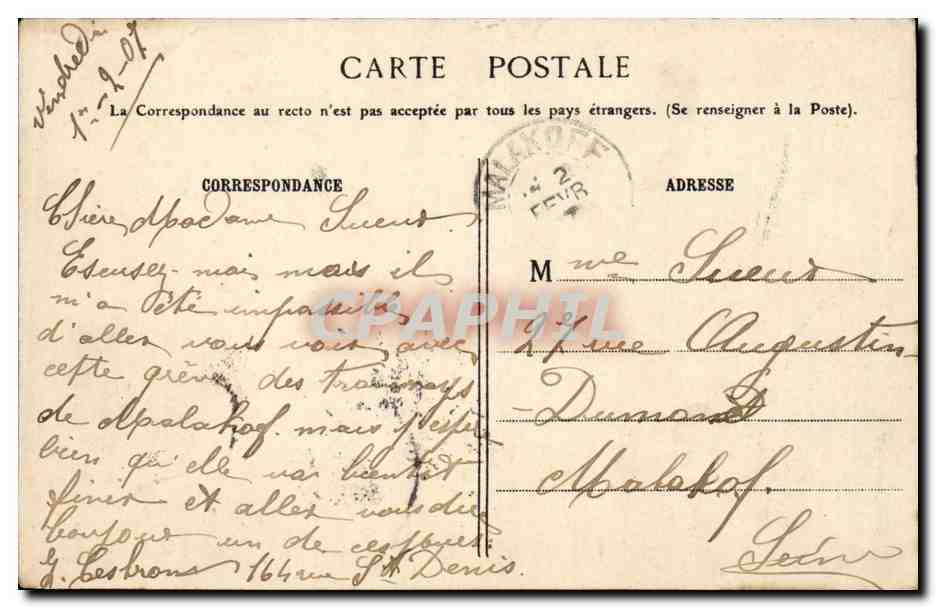 Vendredi
1er-2-07
CARTE POSTALE
La Correspondance au recto n'est pas acceptée par tous les pays étrangers. (Se renseigner à la Poste).
MALAKOFF
2
FEVR
CORRESPONDANCE
ADRESSE
Chère Madame Sueur.
Escusez-moi mais il
m'a été impossible
d'aller vous voir avec
cette grève des tramways
de Malakof. mais j'espère
bien qu'elle va bientôt
finir et aller vous dire
bonjour un de ces jours.
164 rue St Denis.
Mme Sueur
27 rue Augustin-
-Dumont
Malakof.
Seine
CPAPHIL